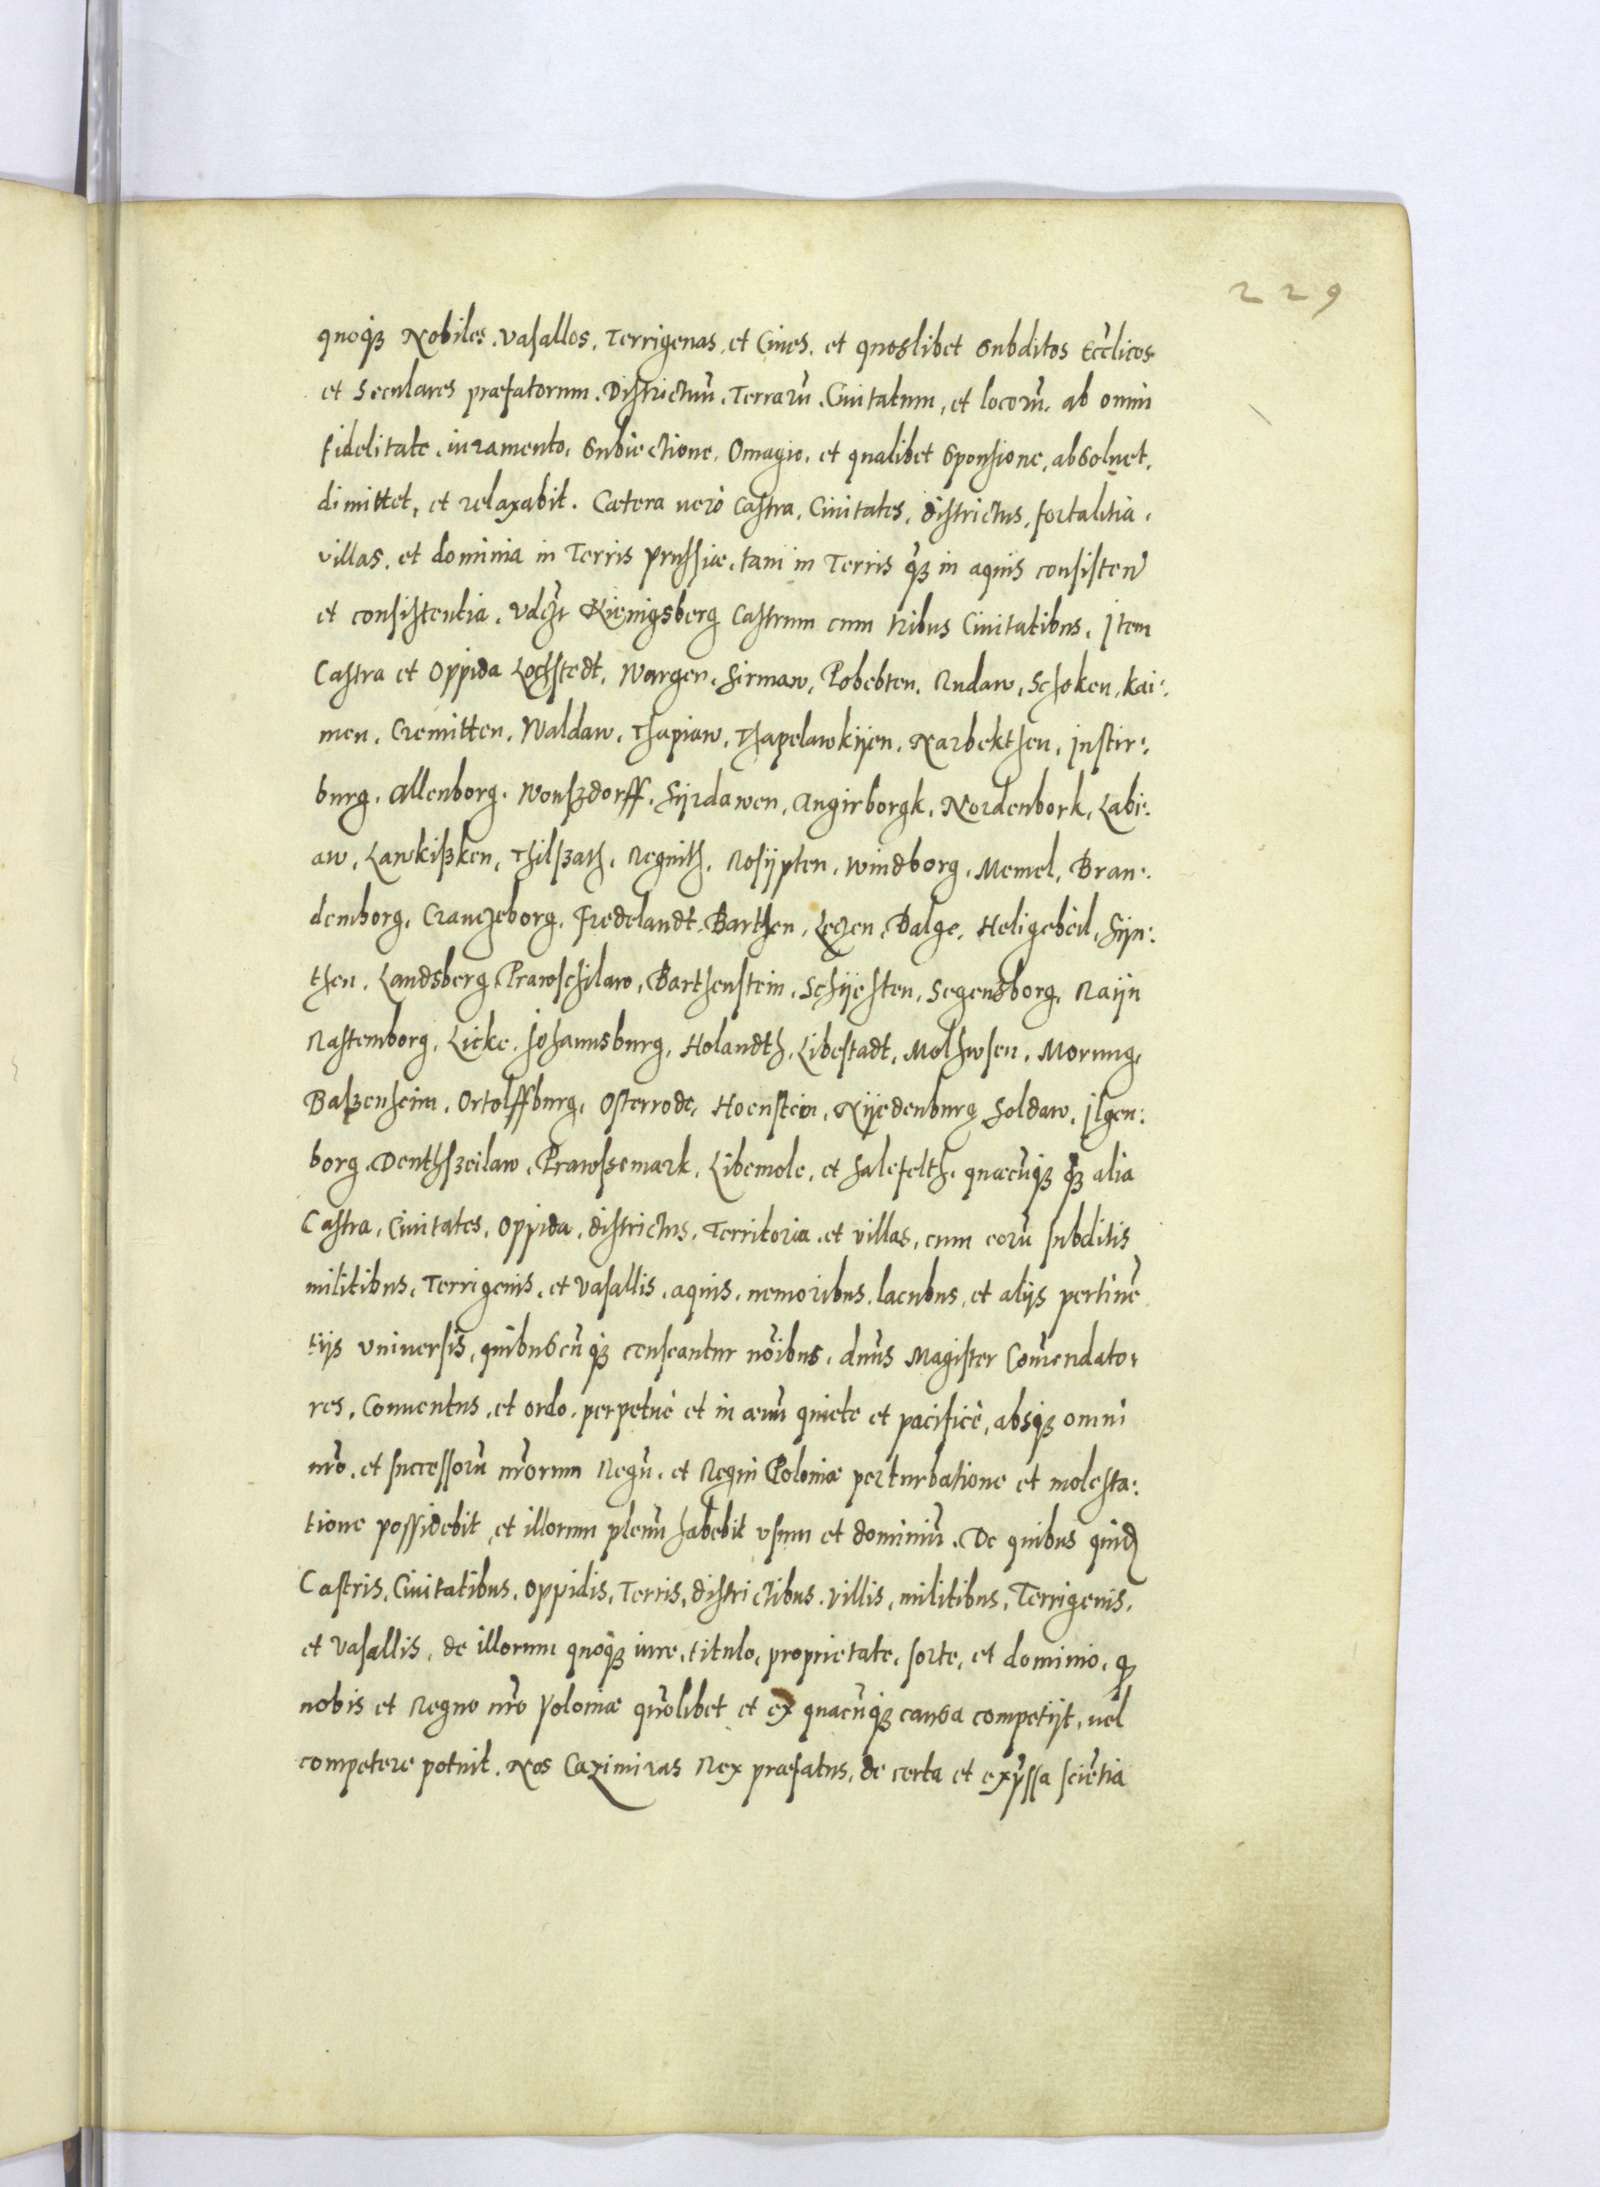 229
quoqꝫ Nobiles. Vasallos. Terrigenas. et Ciues. et quoslibet Subditos Ecc̃licos
et Seculares præfatorum. Districtuũ. Terrarũ. Ciuitatum, et locorũ. ab omni
fidelitate. iuramento. Subiectione. Omagio. et qualibet Sponsione, absoluet.
dimittet, et relaxabit. Cætera uerò Castra, Ciuitates, districtus, fortalitia.
villas. et dominia in Terris Prussiæ. tam in Terris q̃ꝫ in aquis consisten̄
et consistentia. Vdcꝫt Kienigsberg Castrum cum tribus Ciuitatibus. Item
Castra et Oppida Lochstedt. Wargen. Girmaw, Pobebten. Rudaw, Schoken, Kai:
men. Cremitten. Waldaw. Thapiaw. Thapelawkijen. Narbekthen. Instir:
burg. Allenborg. Wonsꝫdorff. Gijrdawen. Angirborgk. Nordenbork, Labi:
aw. Lawkißken. Thilsꝫath. Regnith. Rosijpten. Windborg. Memel. Bran:
demborg. Crauczeborg. Fredelandt. Barthen. Leczen. Balge. Heligebeil. Sijn:
then. Landsberg. Prawschilaw. Barthenstein. Schijesten. Segensborg. Raijn
Rastemborg. Licke. Johannsburg. Holandth. Libestadt. Molhwsen. Morung.
Basꝫenheim. Ortolffburg. Osterrode. Hoenstein. Nijedenburg Soldaw. Ilgen:
borg. Deuthsꝫeilaw. Prawssemark. Libemole. et Salefelth. quæcũqꝫ qꝫ alia
Castra. Ciuitates. Oppida. districtus. Territoria. et villas, cum eorũ subditis
militibus. Terrigenis. et Vasallis. aquis. nemoribus. lacubus. et alijs pertinẽ
tijs vniuersis, quibuscũqꝫ censeantur nõibus. dnũs Magister Com̃endato:
res. Conuentus. et ordo. perpetuè et in æuũ quiete et pacificè, absqꝫ omni
nr̃o. et successorũ nr̃orum Regũ. et Regni Poloniæ perturbatione et molesta:
tione possidebit et illorum plenũ habebit vsum et dominiũ. De quibus quidꝫ
Castris. Ciuitatibus. Oppidis. Terris, districtibus. villis. militibus. Terrigenis.
et Vasallis. de illorum quoqꝫ iure. titulo. proprietate. sorte. et dominio. qꝫ
nobis et Regno nr̃o Poloniæ qũolibet et ex quacũqꝫ causa competijt. uel
competere potuit. Nos Cazimirus Rex præfatus. de certa et exp̃ssa sciẽtia